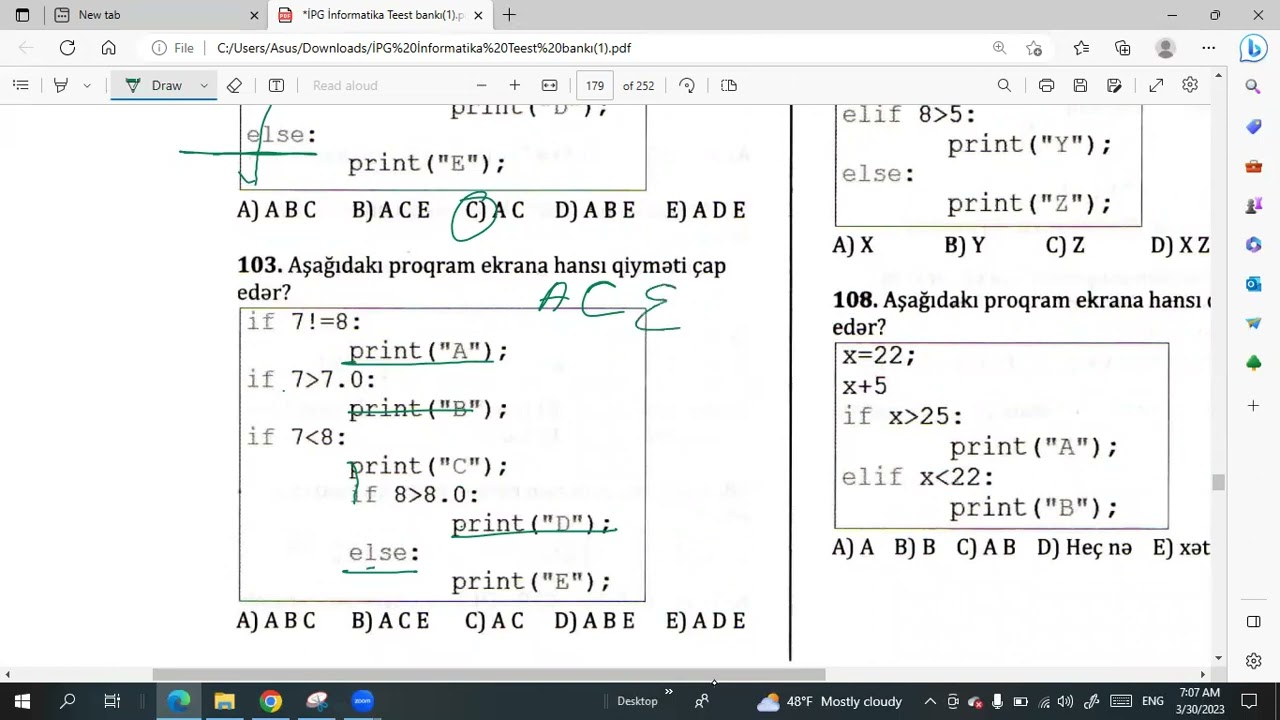 New tab
*İPG İnformatika Teest bankı(1).p
File C:/Users/Asus/Downloads/İPG%20İnformatika%20Teest%20bankı(1).pdf
Draw Read aloud 179 of 252
print("D");
else:
print("E");
A) A B C B) A C E C) A C D) A B E E) A D E
103. Aşağıdakı proqram ekrana hansı qiyməti çap
edər?
A C E
if 7!=8:
print("A");
if 7>7.0:
print("B");
if 7<8:
print("C");
if 8>8.0:
print("D");
else:
print("E");
A) A B C B) A C E C) A C D) A B E E) A D E
elif 8>5:
print("Y");
else:
print("Z");
A) X B) Y C) Z D) X Z
108. Aşağıdakı proqram ekrana hansı
edər?
x=22;
x+5
if x>25:
print("A");
elif x<22:
print("B");
A) A B) B C) A B D) Heç nə E) xət
zoom Desktop 48°F Mostly cloudy ENG 7:07 AM
3/30/2023